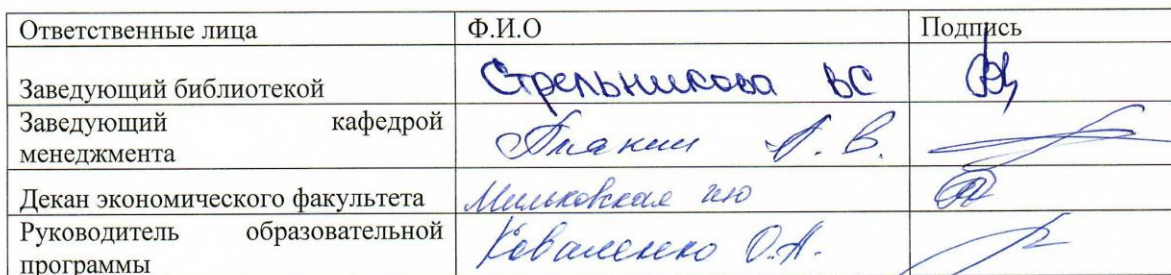 Ответственные лица Ф.И.О Подпись
Заведующий библиотекой Стрельникова ВС
Заведующий кафедрой
менеджмента А. В.
Декан экономического факультета Мильковская
Руководитель образовательной
программы Коваленко О.А.